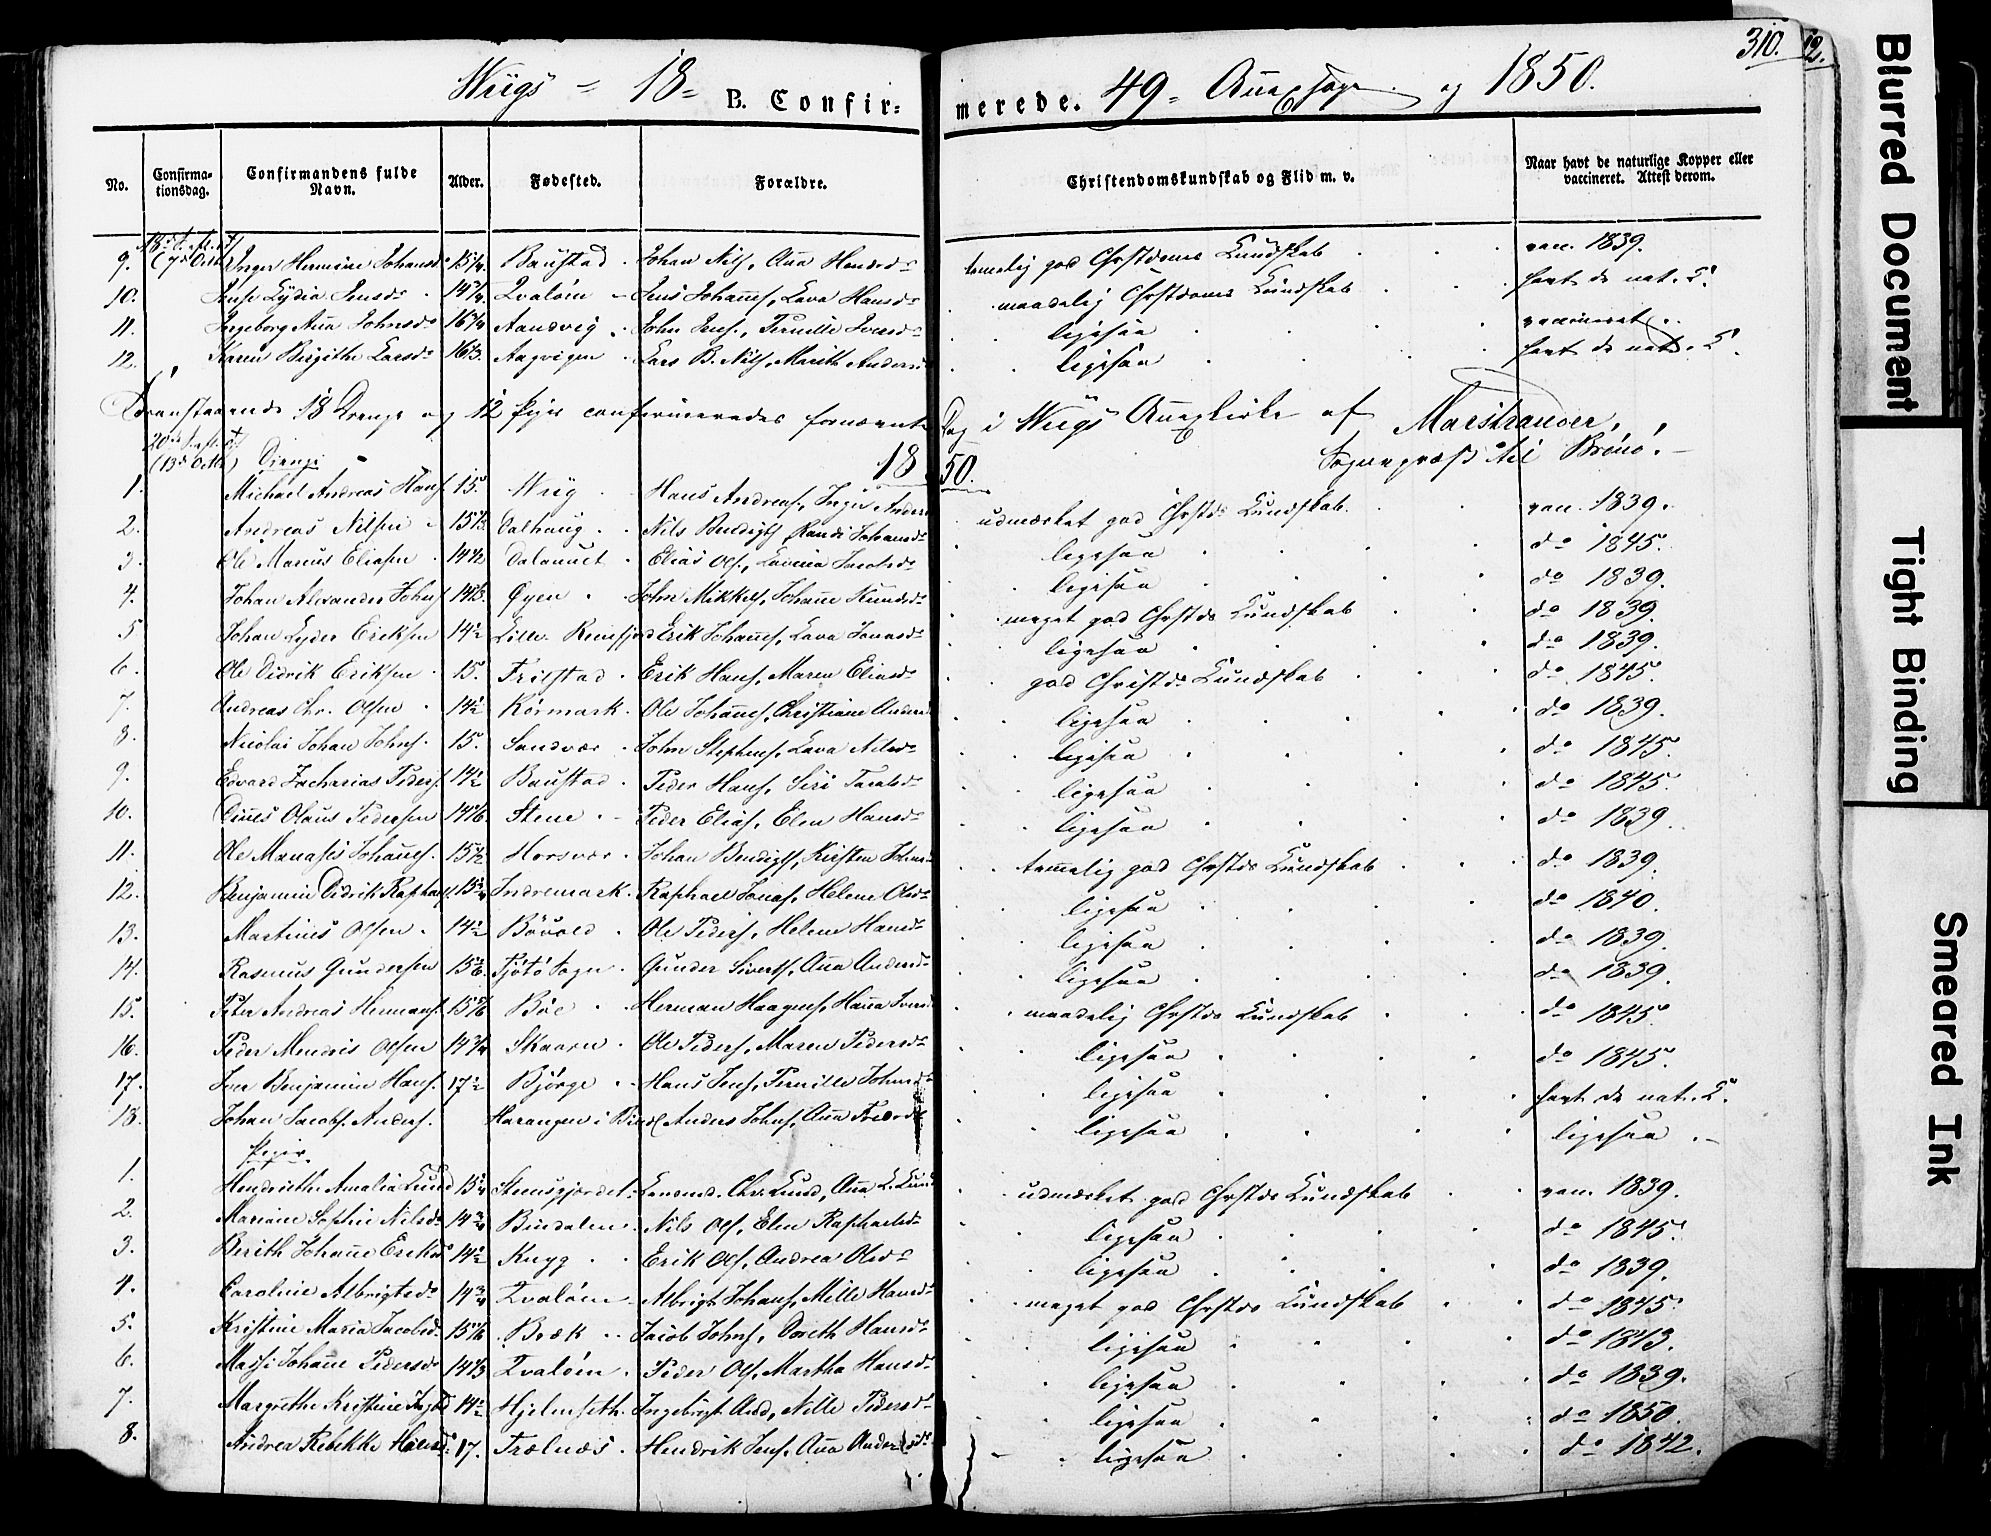 310. 12.
Wiigs = 18= B. Confir= merede. 49= Annexsogn og 1850.
No. Confirma-tionsdag. Confirmandens fulde Navn. Alder. Fødested. Forældre. Christendomskundskab og Flid m. v. Naar havt de naturlige Kopper eller vaccineret. Attest derom.
9. Inger Hermine Johansd 15 1/4 Baustad Johan Nils, Anna Hansd temelig god Chrstdoms Kundskab vac. 1839.
10. Lydia Jensd Qvaløin Jens Johans, Lava Hansd maadelig Chrstdoms Kundskab havt de nat. K.
11. Ingeborg Anna Johnsd 16 Aandvig John Jens., Pernille Iversd ligesaa vaccineret
12. Karen Birgithe Larsd 16 Aagvigen Lars B. Nils, Marith Anders ligesaa havt de nat. K.
Foranstaaende 18 Drenge og 12 Piger confirmeredes fornævnte Dag i Wiigs Annexkirke af Marstrander,
Sogneprest til Brønø.
(13de Octb) Drenge 1850.
1. Michael Andreas Hans 15. Wiig Hans Andreas, Inger Anders udmærket god Chrstds Kundskab. vac. 1839.
2. Andreas Nilsen 15 1/3 Dalhaug Nils Bendigts, Randi Johansd ligesaa do 1845.
3. Ole Marius Eliasen 14 1/2 Dalamuet Elias Ols., Lavina Jacobsd ligesaa do 1839.
4. Johan Alexander Johns 14 2/3. Øyen John Mikkels, Johanne Knudsd meget god Chrstds Kundskab do 1839.
5 Johan Lyder Eriksen 14 1/2 Lille Reinfjord Erik Johans, Lava Jonasd ligesaa do 1839.
6. Ole Didrik Eriksen 15. Trilstad Erik Hans, Maren Eliasd god Christds Kundskab do 1845.
7. Andreas Chr. Olsen 14 1/2 Kørmark Ole Johans, Christiane Anders ligesaa do 1839.
8. Nicolai Johan Johns 15. Sandvær John Stephens, Lava Nilsd ligesaa do 1845.
9. Edvard Zacharias Peders 14 1/2 Baustad Peder Hans, Siri ligesaa do 1845.
10. Dines Olaus Pedersen 14 Stene Peder Elias, Elen Hansd ligesaa do 1839.
11. Ole Manases Johans 15 1/2 Horsvær Johan Bendigts, Kirsten Johns temmelig god Chrstds Kundskab do 1839.
12. Benjamin Didrik Raphaels 15 Indremark Raphael Jonas, Helene Olsd ligesaa do 1840.
13. Martinus Olsen 14 1/2 Bøvold Ole Peders, Helene Hansd ligesaa do 1839.
14. Rasmus Gundersen 15 Tjøtø Sogn Gunder Siverts, Anna Andersd ligesaa do 1839.
15. Peter Andreas Hermans 15 Bøe Herman Haagens, Hanna Ivers maadelig Chrstds Kundskab do 1845.
16. Peder Mendris Olsen 14 3/4 Skaaren Ole Peders, Maren Pedersd ligesaa do 1845.
17. Iver Benjamin Hans 17 1/2 Bjørge Hans Jens, Pernille Johnsd ligesaa havt de nat. K.
18. Johan Jacobs Anders. Harangen i Bind Anders Johns, Anna ligesaa ligesaa
Piger.
1. Hendriethe Amalia Lund 15 1/4 Steensgjordet Chr. Lund, Anna L. Lund udmærket god Chrstds Kundskab vac. 1839.
2. Mariane Sophie Nilsd 14 3/4 Bindalen Nils Ols, Elen Raphaelsd ligesaa do 1845.
3. Berith Johanne Eriksd 14 1/2 Kugg Erik Ols, Andrea Olsd ligesaa do 1839.
4. Caroline Albrigtsd 14 3/4 Qvaløin Albrigt Johans, Mille Hansd meget god Chrstds Kundskab do 1845.
5. Kristine Maria Jacobsd 15 Bræk Jacob Johns, Dorth Hansd ligesaa do 1843.
6. Massi Johanne Pedersd 14 2/3 Qvaløin Peder Ols, Martha Hansd ligesaa do 1839.
7. Margrethe Kristine Ingbd 14 1/2 Hjelmseth Ingebrigt And, Nille Pedersd ligesaa do 1850.
8. Andrea Rebekke 17. Trælnæs Hendrik Jens, Anna Andersd ligesaa do 1842.
Blurred Document
Tight Binding
Smeared Ink